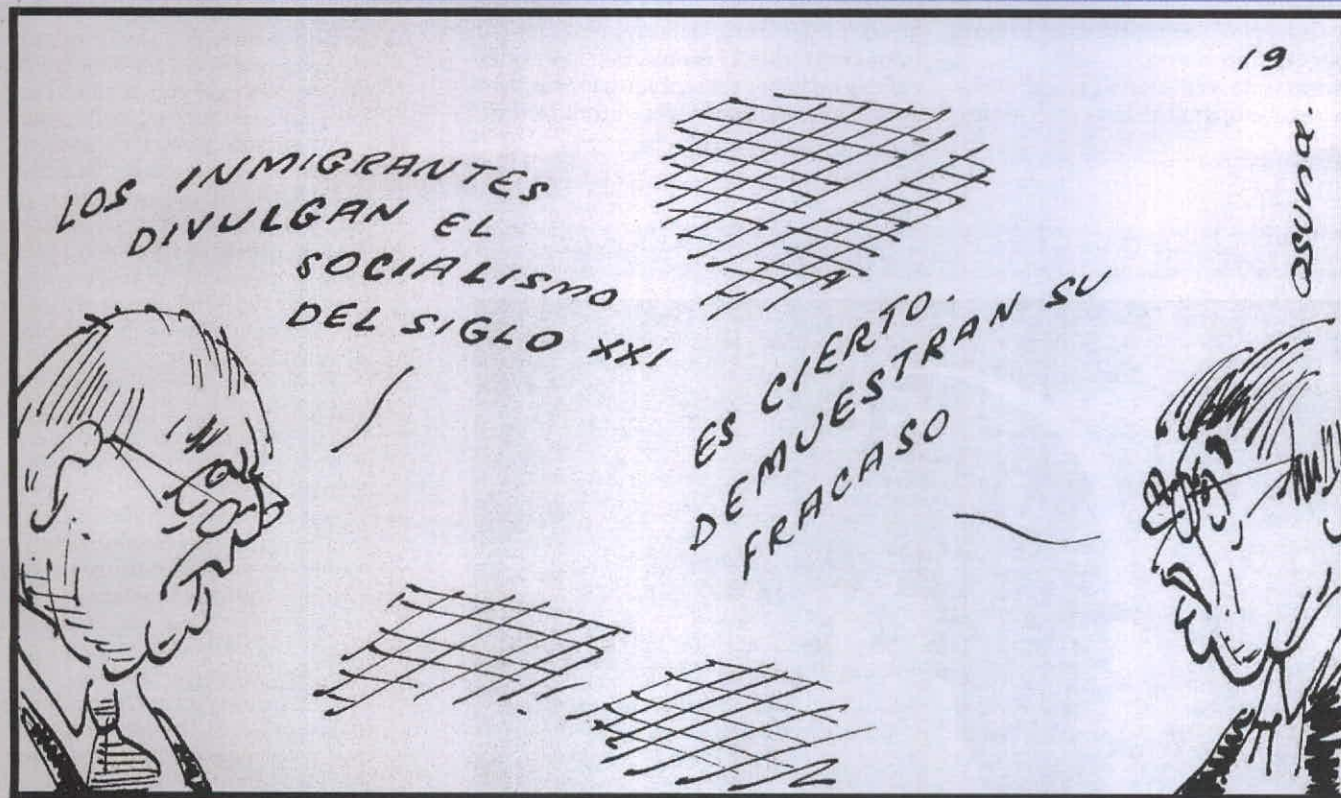 19
osuna.
LOS INMIGRANTES
DIVULGAN EL
SOCIALISMO
DEL SIGLO XXI
ES CIERTO.
DEMUESTRAN SU
FRACASO